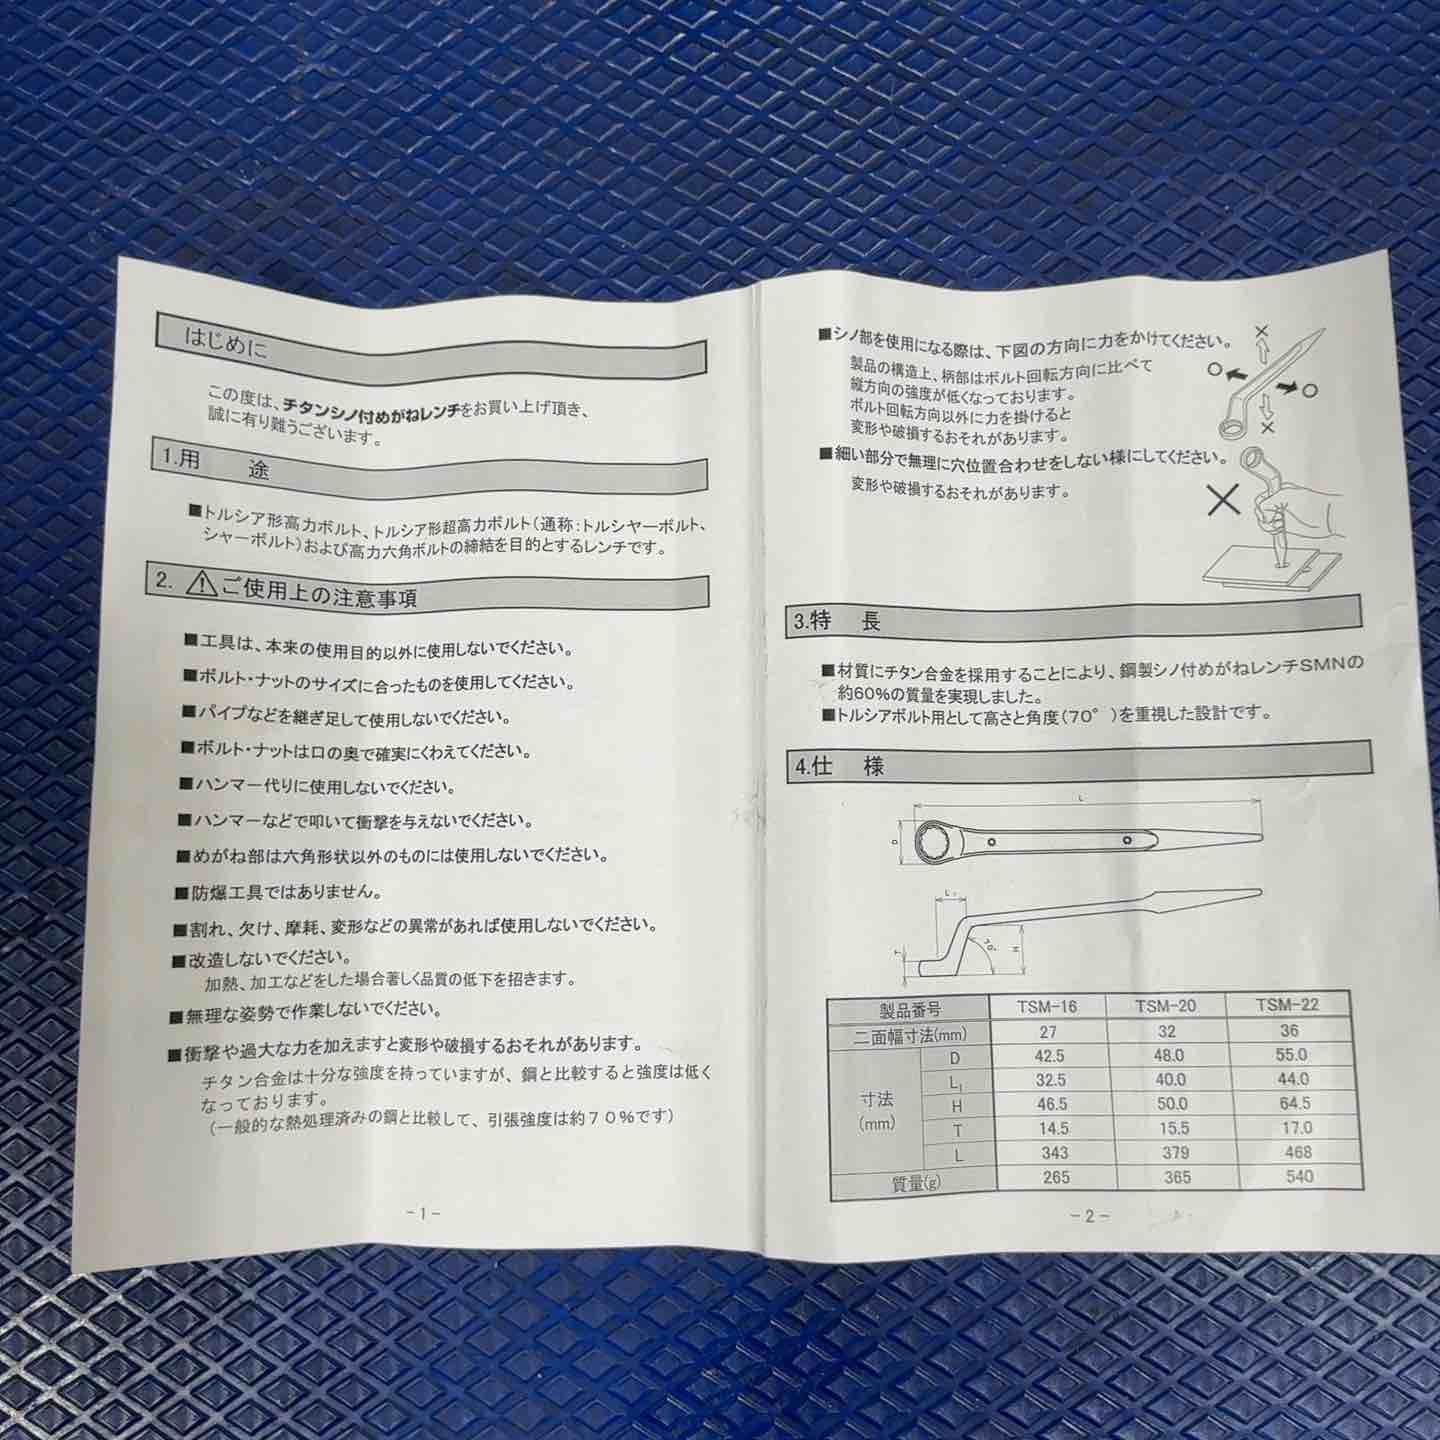 はじめに
この度は、チタンシノ付めがねレンチをお買い上げ頂き、
誠に有り難うございます。
1.用 途
■トルシア形高力ボルト、トルシア形超高力ボルト(通称:トルシヤーボルト、
シャーボルト)および高力六角ボルトの締結を目的とするレンチです。
2. ⚠ご使用上の注意事項
■工具は、本来の使用目的以外に使用しないでください。
■ボルト・ナットのサイズに合ったものを使用してください。
■パイプなどを継ぎ足して使用しないでください。
■ボルト・ナットは口の奥で確実にくわえてください。
■ハンマー代りに使用しないでください。
■ハンマーなどで叩いて衝撃を与えないでください。
■めがね部は六角形状以外のものには使用しないでください。
■防爆工具ではありません。
■割れ、欠け、摩耗、変形などの異常があれば使用しないでください。
■改造しないでください。
加熱、加工などをした場合著しく品質の低下を招きます。
■無理な姿勢で作業しないでください。
■衝撃や過大な力を加えますと変形や破損するおそれがあります。
チタン合金は十分な強度を持っていますが、鋼と比較すると強度は低く
なっております。
(一般的な熱処理済みの鋼と比較して、引張強度は約70%です)
-1-
■シノ部を使用になる際は、下図の方向に力をかけてください。
製品の構造上、柄部はボルト回転方向に比べて
縦方向の強度が低くなっております。
ボルト回転方向以外に力を掛けると
変形や破損するおそれがあります。
■細い部分で無理に穴位置合わせをしない様にしてください。
変形や破損するおそれがあります。
3.特 長
■材質にチタン合金を採用することにより、鋼製シノ付めがねレンチSMNの
約60%の質量を実現しました。
■トルシアボルト用として高さと角度(70°)を重視した設計です。
4.仕 様
L
D
L₁
T
70°
H
製品番号 TSM-16 TSM-20 TSM-22
二面幅寸法(mm) 27 32 36
寸法
(mm)
D 42.5 48.0 55.0
L₁ 32.5 40.0 44.0
H 46.5 50.0 64.5
T 14.5 15.5 17.0
L 343 379 468
質量(g) 265 365 540
-2-